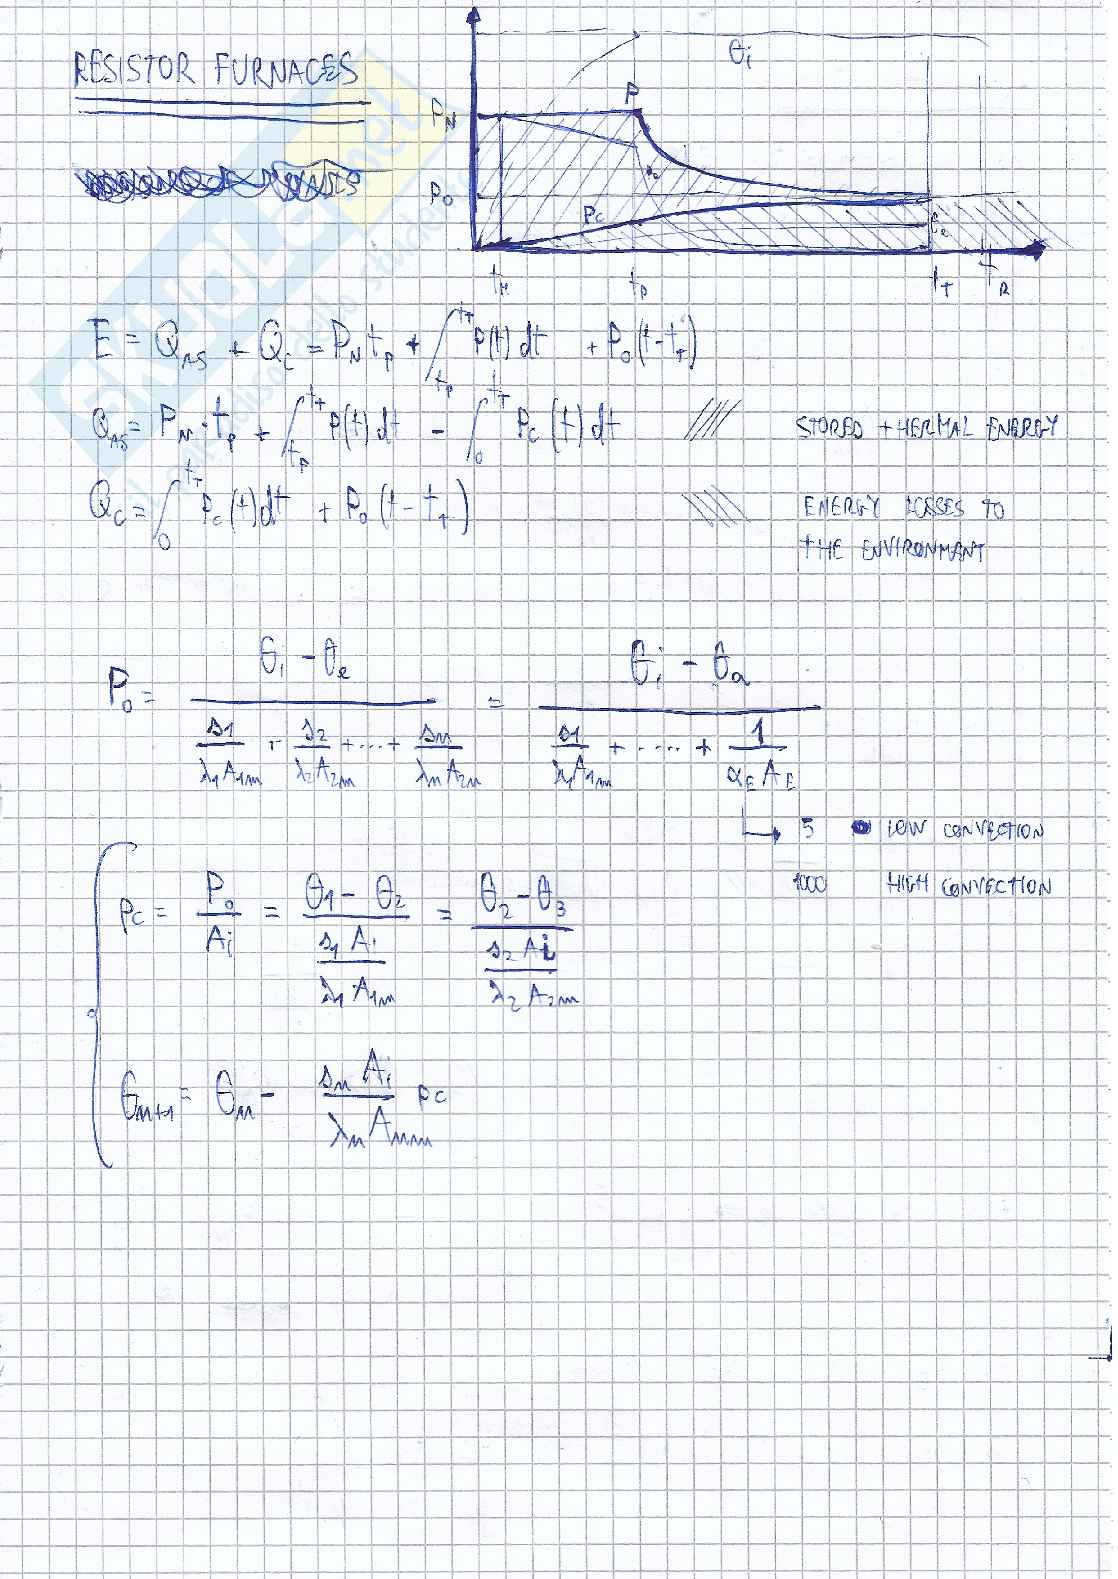 RESISTOR FURNACES
θi
P_N
P
P_0
P_C
t_P
t_T
t_R
E = Q_AS + Q_C = P_N t_P + ∫_{t_P}^{t_T} P(t) dt + P_0 (t - t_T)
Q_AS = P_N · t_P + ∫_{t_P}^{t_T} P(t) dt - ∫_0^{t_T} P_C (t) dt STORED THERMAL ENERGY
Q_C = ∫_0^{t_T} P_C (t) dt + P_0 (t - t_T) ENERGY LOSSES TO
THE ENVIRONMANT
P_0 = (θi - θe) / (s1/(λ1 A1m) + s2/(λ2 A2m) + ... + sn/(λn A2n)) = (θi - θa) / (s1/(λ1 A1m) + ..... + 1/(α_E A_E))
5 LOW CONVECTION
1000 HIGH CONVECTION
pc = P_0/Ai = (θ1 - θ2) / (s1 Ai/(λ1 A1m)) = (θ2 - θ3) / (s2 Ai/(λ2 A2m))
θn+1 = θn - (sn Ai)/(λn Anm) pc
SKUOLA.net
il paradiso dello studente